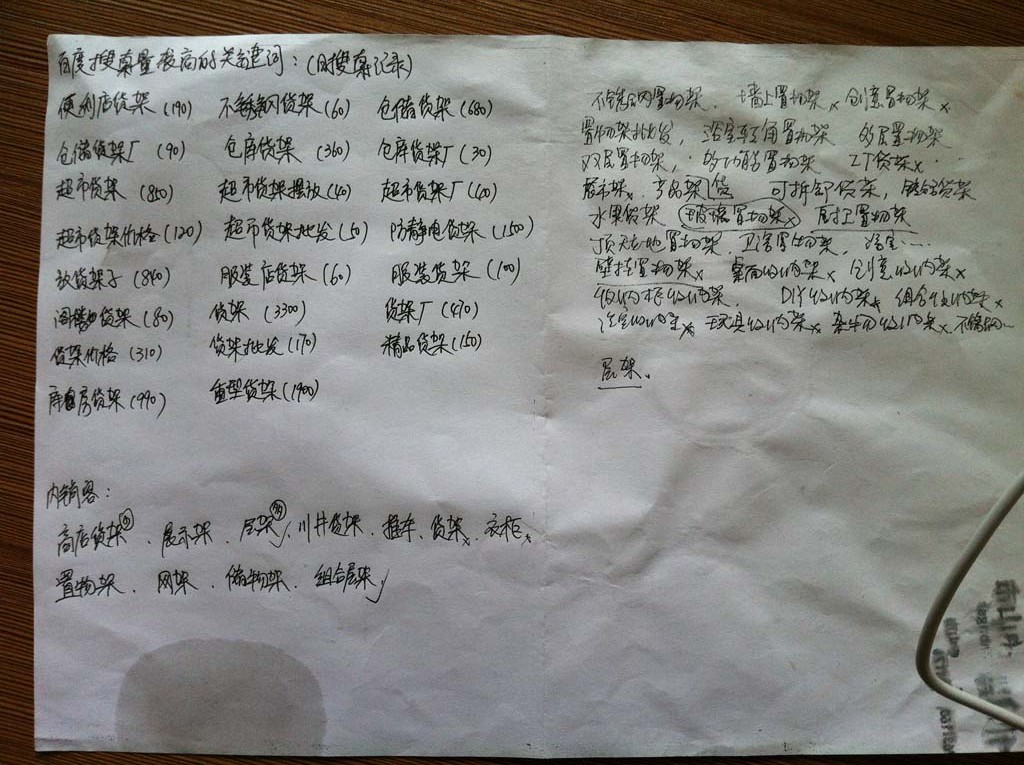 百度搜索量最高的关键词：(日搜索记录)
便利店货架(190) 不锈钢货架(60) 仓储货架(680)
仓储货架厂(90) 仓库货架(360) 仓库货架厂(30)
超市货架(850) 超市货架摆放(40) 超市货架厂(40)
超市货架价格(120) 超市货架批发(50) 防静电货架(150)
放货架子(840) 服装店货架(60) 服装货架(100)
货架(80) 货架(3300) 货架厂(470)
货架价格(310) 货架批发(170) 精品货架(150)
库房货架(990) 重型货架(1900)
内销客：
商店货架、展示架、层架、川井货架、推车、货架x、衣柜x
置物架、网架、储物架、组合层架
不锈钢置物架、墙上置物架x 创意置物架x
置物架批发，浴室转角置物架 多层置物架
双层置物架，多功能置物架 工厂货架x
展示架、产品架 可拆卸货架，组合货架
水果货架 玻璃置物架x 厨卫置物架
顶天立地置物架、卫浴置物架，浴室……
壁挂置物架x 桌面收纳架x 创意收纳架x
收纳柜收纳架、 DIY收纳架x 组合收纳架x
浴室收纳架x 玩具收纳架x 杂物收纳架x 不锈钢…
层架、